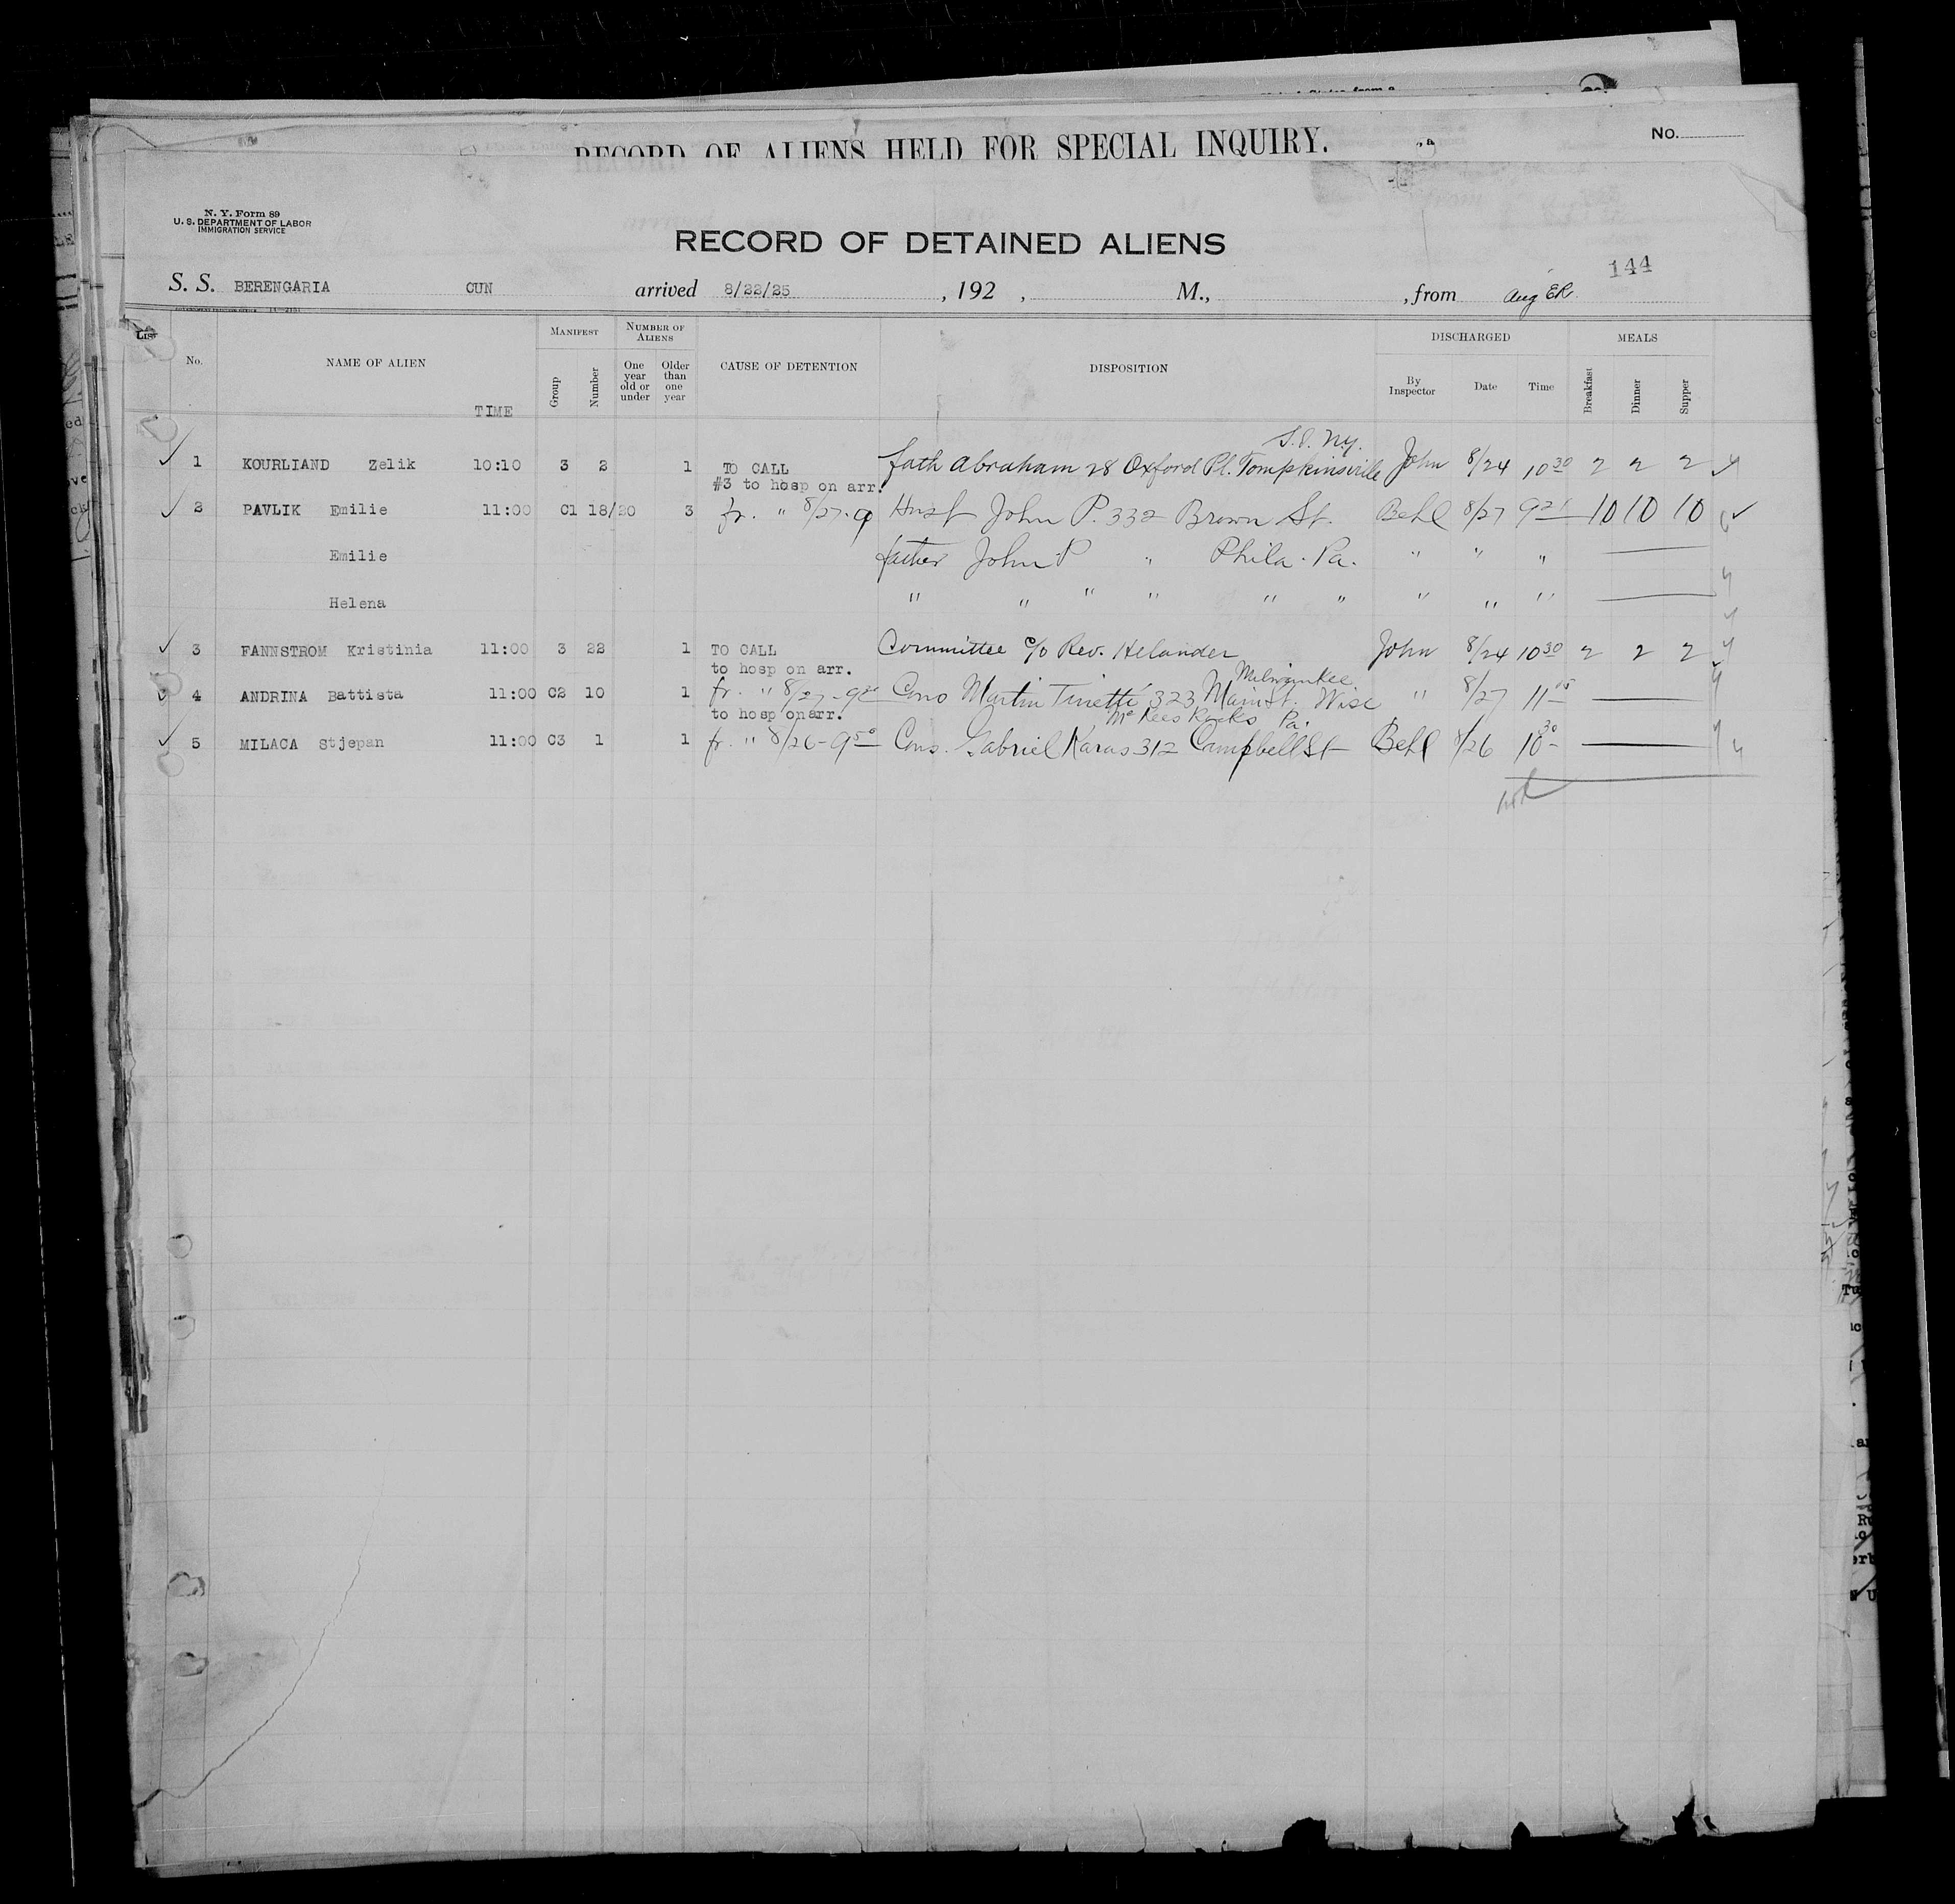 RECORD OF ALIENS HELD FOR SPECIAL INQUIRY.
No.
N. Y. Form 89
U. S. DEPARTMENT OF LABOR
IMMIGRATION SERVICE
RECORD OF DETAINED ALIENS
144
S. S. BERENGARIA CUN arrived 8/22/25, 192 , M., , from Aug
No. NAME OF ALIEN TIME MANIFEST Group Number NUMBER OF ALIENS One year old or under Older than one year CAUSE OF DETENTION DISPOSITION DISCHARGED By Inspector Date Time MEALS Breakfast Dinner Supper
S.I. N.Y.
1 KOURLIAND Zelik 10:10 3 2 1 TO CALL fath Abraham 28 Oxford Pl. Tompkinsville John 8/24 10 30 2 2 2
#3 to hosp on arr.
2 PAVLIK Emilie 11:00 C1 18/20 3 fr. " 8/27-9 Husb John P. 332 Brown St. Behl 8/27 9 10 10 10
Emilie father John P " Phila. Pa. " " "
Helena " " " " " " " " "
3 FANNSTROM Kristinia 11:00 3 22 1 TO CALL Committee c/o Rev. Helander John 8/24 10 30 2 2 2
to hosp on arr. Milwaukee
4 ANDRINA Battista 11:00 C2 10 1 fr. " 8/27-9 Cons Martin Tinetti 323 Main St. Wisc " 8/27 11
to hosp on arr. McKees Rocks Pa.
5 MILACA Stjepan 11:00 C3 1 1 fr. " 8/26-9 50 Cons. Gabriel Karas 312 Campbell St Behl 8/26 10 30